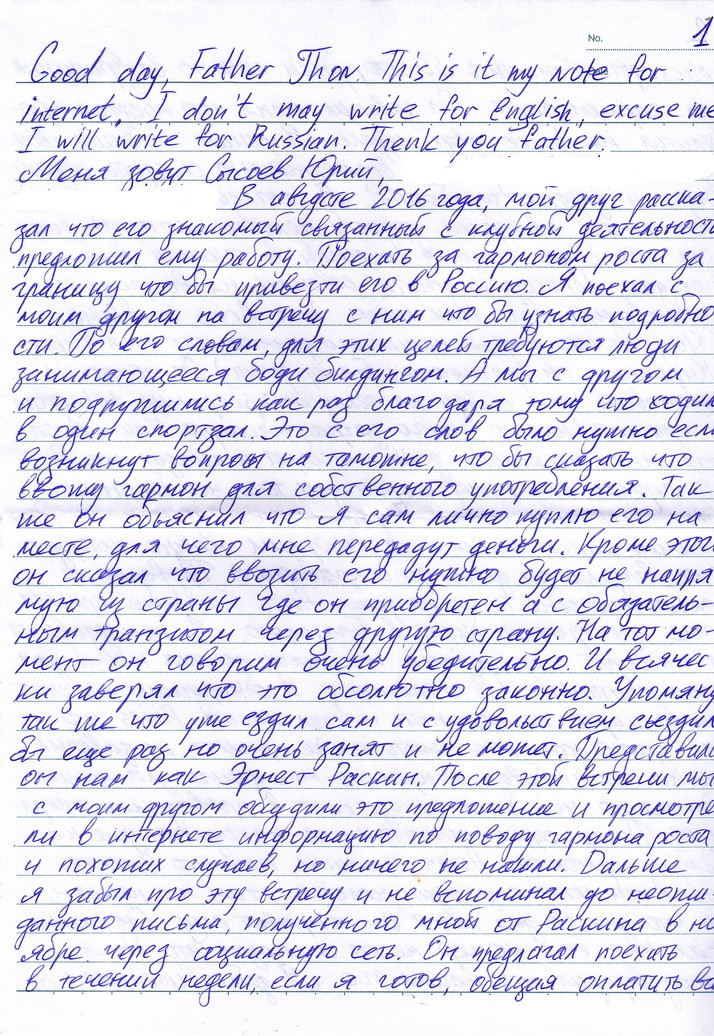 No. 1
Good day, Father Thon. This is it my note for
internet. I don't may write for English, excuse me
I will write for Russian. Thenk you father.
Меня зовут Сысоев Юрий,
В августе 2016 года, мой друг расска-
зал что его знакомый связанный с клубной деятельност
предложил ему работу. Поехать за гармоном роста за
границу что бы привезти его в Россию. Я поехал с
моим другом на встречу с ним что бы узнать подробно
сти. По его словам, для этих целей требуются люди
занимающееся боди билдингом. А мы с другом
и подружились как раз благодаря тому что ходил
в один спортзал. Это с его слов было нужно если
возникнут вопросы на таможне, что бы сказать что
ввожу гармон для собственного употребления. Так
же он обьяснил что я сам лично куплю его на
месте, для чего мне передадут деньги. Кроме этог
он сказал что ввозить его нужно будет не напря
мую из страны где он приобретен а с обязатель-
ным транзитом через другую страну. На тот мо-
мент он говорил очень убедительно. И всячес
ки заверял что это обсолютно законно. Упомяну
так же что уже ездил сам и с удовольствием съездил
бы еще раз но очень занят и не может. Представил
он нам как Эрнест Раскин. После этой встречи мы
с моим другом обсудили это предложение и просмотре
ли в интернете информацию по поводу гармона роста
и похожих случаев, но ничего не нашли. Дальше
я забыл про эту встречу и не вспоминал до неожи-
данного письма, полученного мной от Раскина в но
ябре через социальную сеть. Он предлагал поехать
в течении недели, если я готов, обещая оплатить